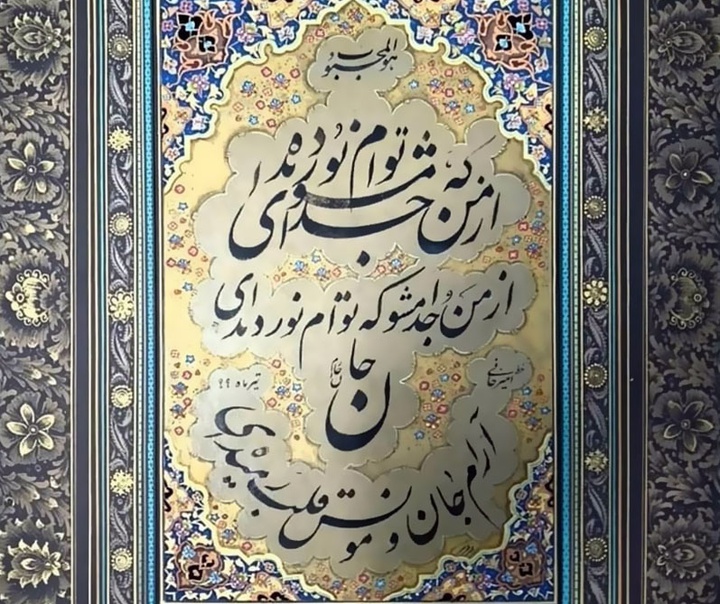 هوالمحبوب
از من که توام نور دیده
جدا مشو ای
از من جدا مشو که توام نور دیده‌ای
جان
خط امیرخانی
تیرماه ۹۹
آرام جان و مونس قلب رمیده‌ای